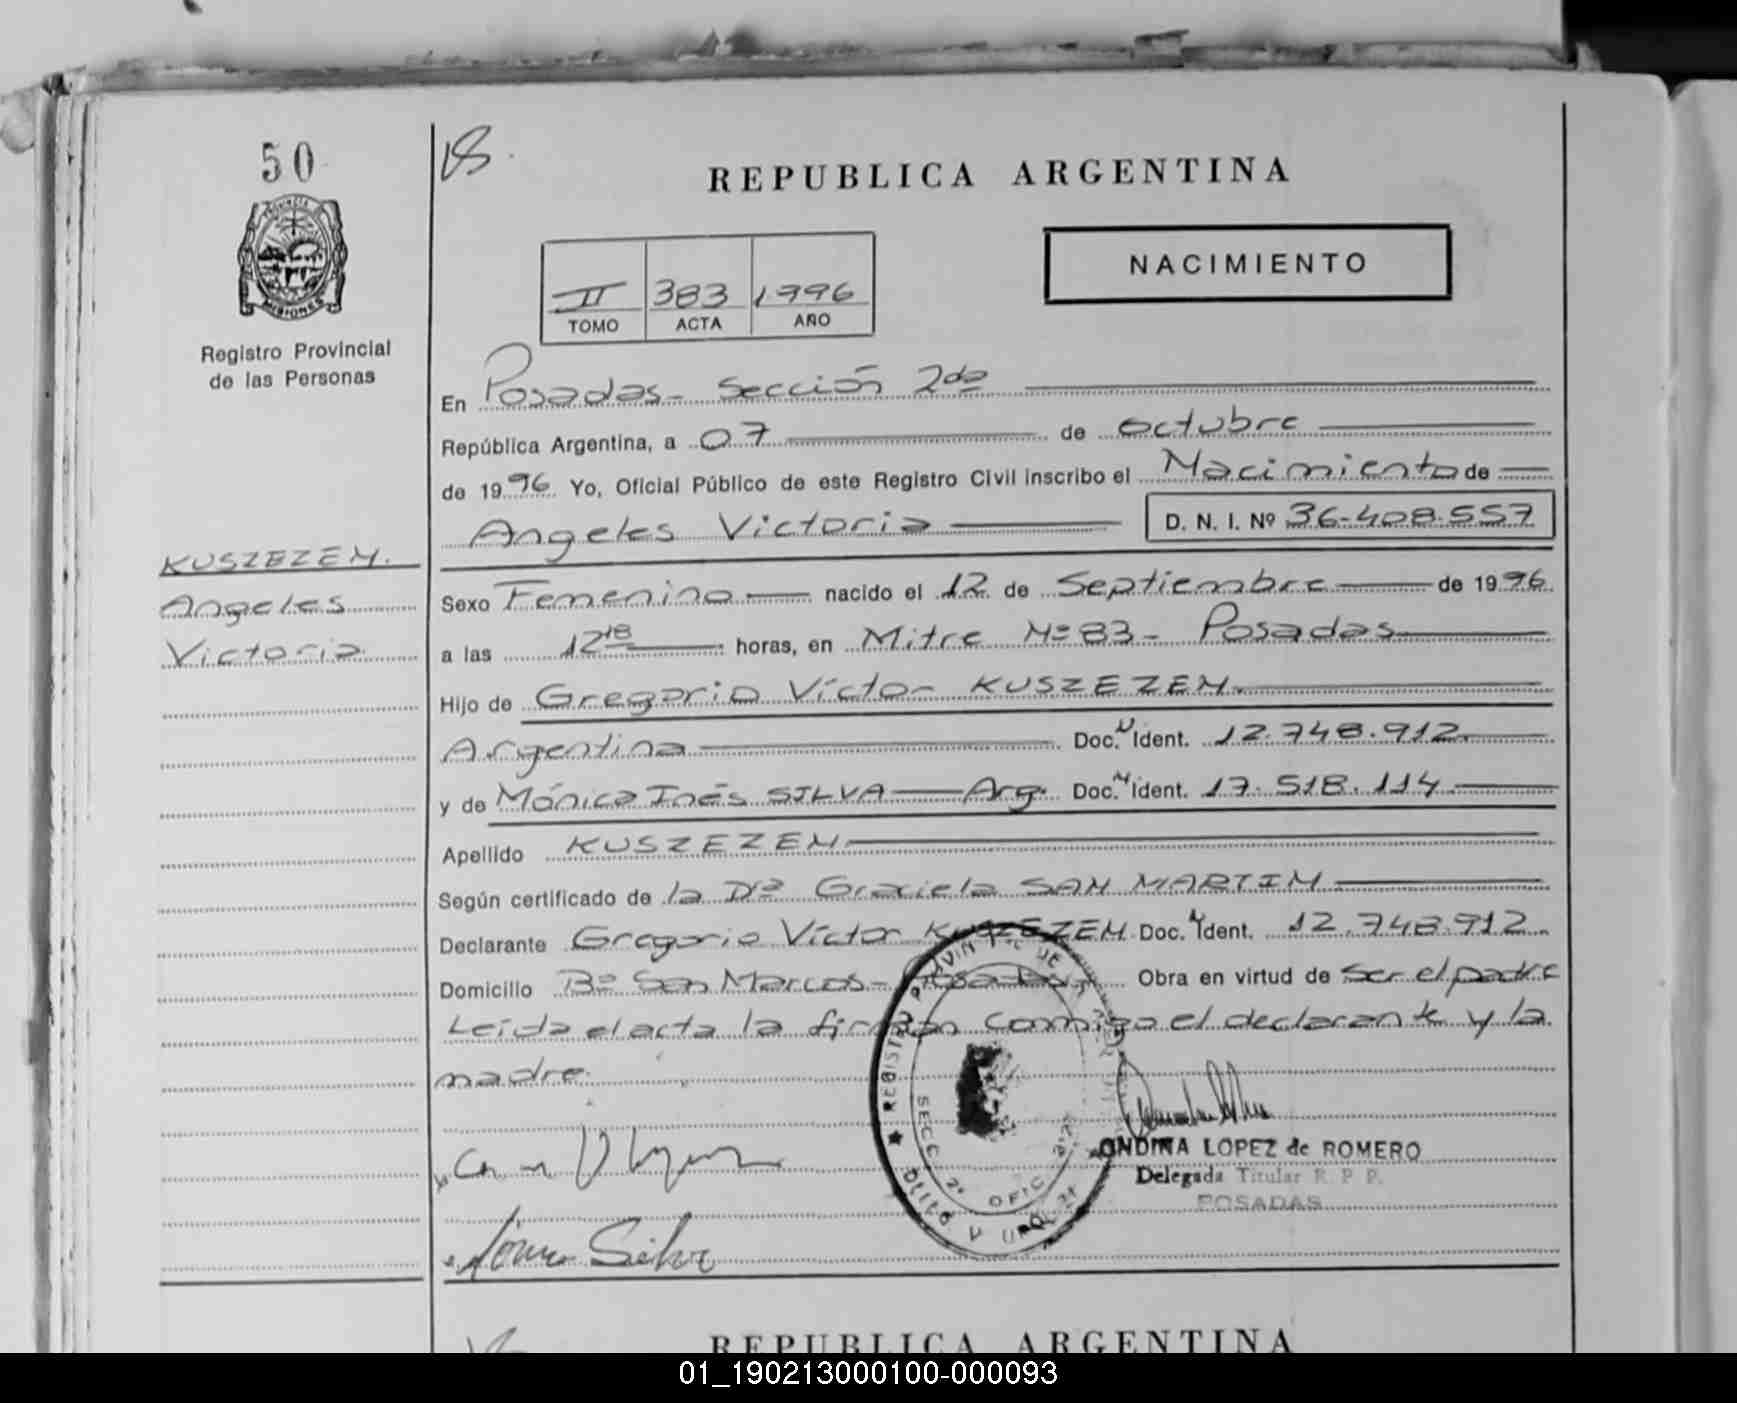 50
18
REPUBLICA ARGENTINA
PROVINCIA DE
MISIONES
Registro Provincial
de las Personas
II 383 1996
TOMO ACTA AÑO
NACIMIENTO
En Posadas - Sección 2da
República Argentina, a 07 de octubre
de 1996 Yo, Oficial Público de este Registro Civil inscribo el Nacimiento de
Angeles Victoria D. N. I. Nº 36-408.557
KUSZEZEN.
Angeles
Victoria
Sexo Femenino nacido el 12 de Septiembre de 1996
a las 12 18 horas, en Mitre Nº 83 - Posadas
Hijo de Gregorio Víctor KUSZEZEN.
Argentina Doc. N Ident. 12.748.912
y de Mónica Inés SILVA Arg. Doc. N Ident. 17.518.114
Apellido KUSZEZEN
Según certificado de la Dra Graciela SAN MARTIN
Declarante Gregorio Víctor KUSZEZEN Doc. N Ident. 12.748.912
Domicilio Bº San Marcos - Posadas Obra en virtud de Ser el padre
Leída el acta la firman conmigo el declarante y la
madre.
REGISTRO PROVINCIAL DE
SECC. 2ª OFIC
ONDINA LOPEZ de ROMERO
Delegada Titular R. P. P.
POSADAS
Silva
REPUBLICA ARGENTINA
01_190213000100-000093